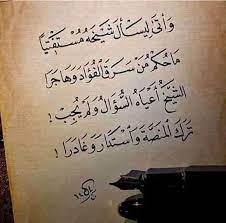 وَأتَى لِيسأل شَيْخَهُ مُسْتَفْتِيًا
مَا حُكْمُ مَنْ سَرَقَ الفُؤَادَ وَهَاجَرَا
الشَّيْخُ أَعْيَاهُ السُّؤَالُ وَلَمْ يُجِبْ !
تَرَكَ المِنَصَّةَ وَاسْتَدَارَ وَغَادَرَا !